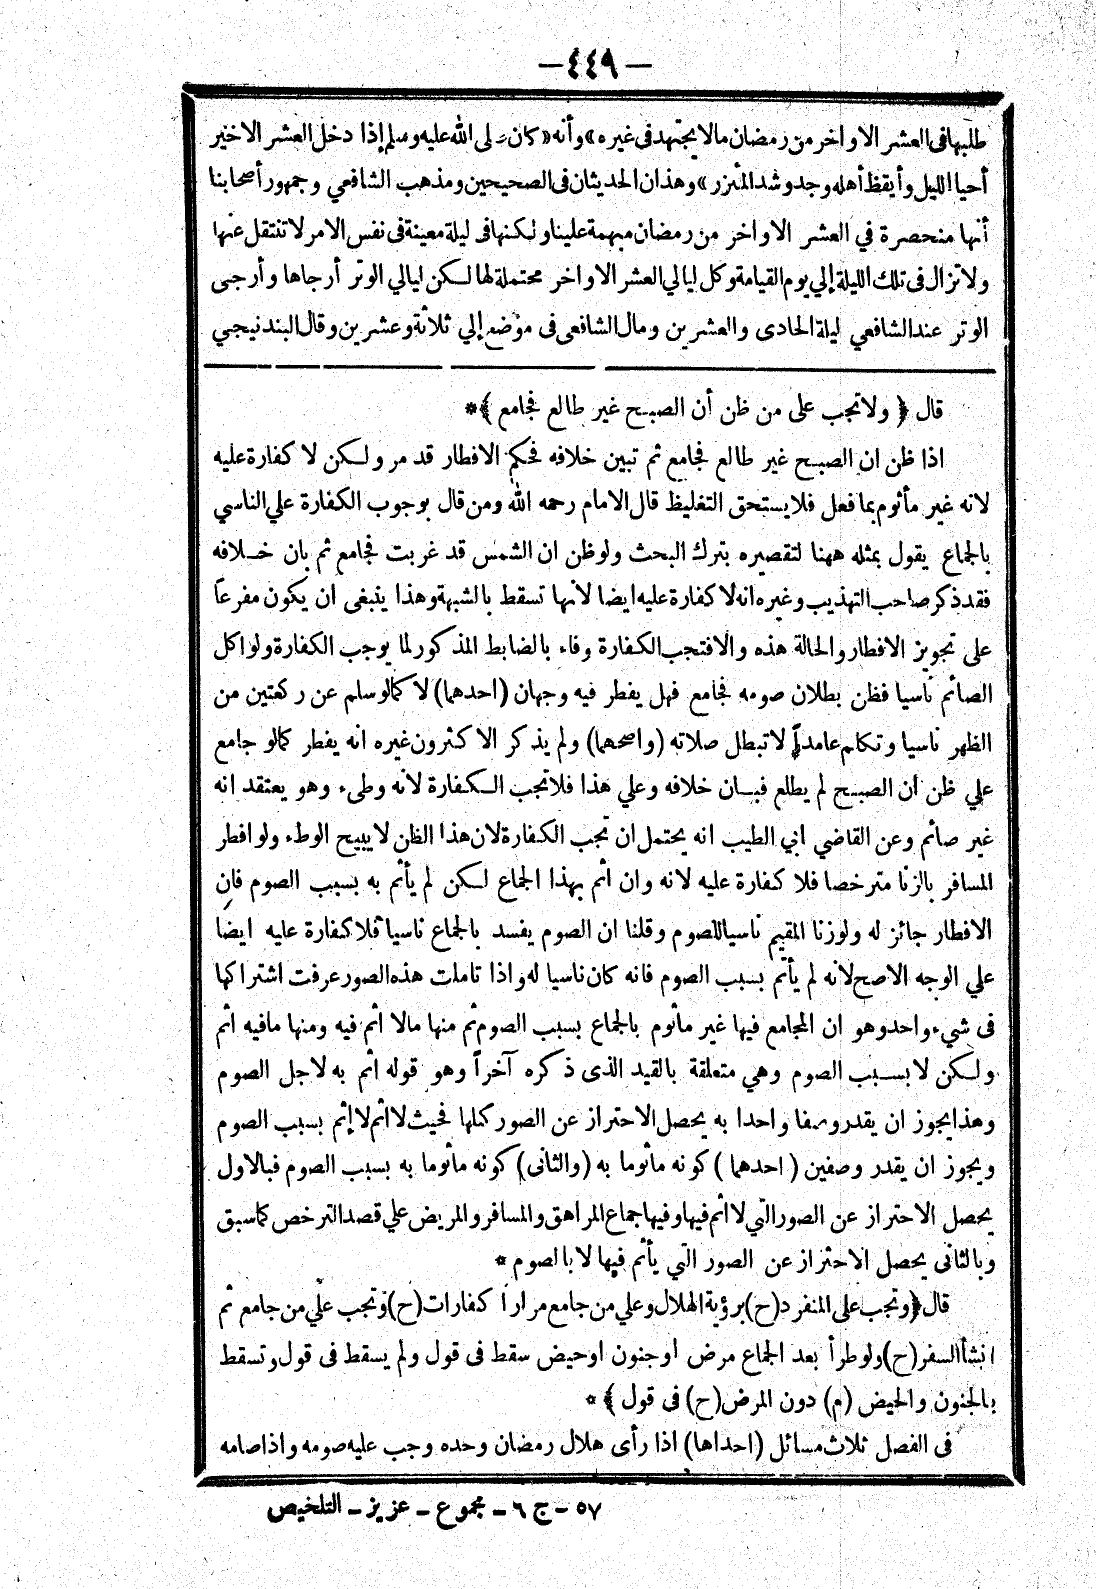 —٤٤٩—
طلبها فى العشر الاواخر من رمضان مالا يجتهد فى غيره» وأنه «كان لى الله عليه وسلم إذا دخل العشر الاخير
أحيا الليل وأيقظ أهله وجد وشد المئزر» وهذان الحديثان فى الصحيحين ومذهب الشافعي وجمهور أصحابنا
أنها منحصرة في العشر الاواخر من رمضان مبهمة علينا ولكنها فى ليلة معينة فى نفس الامر لا تنتقل عنها
ولا تزال فى تلك الليلة إلي يوم القيامة وكل ليالي العشر الاواخر محتملة لها لكن ليالي الوتر أرجاها وأرجى
الوتر عند الشافعي ليلة الحادى والعشرين ومال الشافعى فى موضع إلي ثلاثة وعشرين وقال البندنيجي
قال ﴿ ولا تجب على من ظن أن الصبح غير طالع فجامع ﴾ *
اذا ظن ان الصبح غير طالع فجامع ثم تبين خلافه فحكم الافطار قد مر ولكن لا كفارة عليه
لانه غير مأثوم بما فعل فلا يستحق التغليظ قال الامام رحمه الله ومن قال بوجوب الكفارة علي الناسي
بالجماع يقول بمثله ههنا لتقصيره بترك البحث ولو ظن ان الشمس قد غربت فجامع ثم بان خلافه
فقد ذكر صاحب التهذيب وغيره انه لا كفارة عليه ايضا لانها تسقط بالشبهة وهذا ينبغى ان يكون مفرعاً
على تجويز الافطار والحالة هذه والا فتجب الكفارة وفاء بالضابط المذكور لما يوجب الكفارة ولو اكل
الصائم ناسيا فظن بطلان صومه فجامع فهل يفطر فيه وجهان (احدهما) لا كما لو سلم عن ركعتين من
الظهر ناسيا وتكلم عامداً لا تبطل صلاته (واصحهما) ولم يذكر الاكثرون غيره انه يفطر كما لو جامع
علي ظن ان الصبح لم يطلع فبان خلافه وعلي هذا فلا تجب الكفارة لأنه وطىء وهو يعتقد انه
غير صائم وعن القاضي ابي الطيب انه يحتمل ان تجب الكفارة لان هذا الظن لا يبيح الوطء ولو افطر
المسافر بالزنا مترخصا فلا كفارة عليه لانه وان اثم بهذا الجماع لكن لم يأثم به بسبب الصوم فان
الافطار جائز له ولو زنا المقيم ناسيا للصوم وقلنا ان الصوم يفسد بالجماع ناسيا فلا كفارة عليه ايضا
علي الوجه الاصح لانه لم يأثم بسبب الصوم فانه كان ناسيا له واذا تاملت هذه الصور عرفت اشتراكها
فى شيء واحد وهو ان المجامع فيها غير مأثوم بالجماع بسبب الصوم ثم منها مالا اثم فيه ومنها مافيه اثم
ولكن لا بسبب الصوم وهي متعلقة بالقيد الذى ذكره آخراً وهو قوله اثم به لاجل الصوم
وهذا يجوز ان يقدر وصفا واحدا به يحصل الاحتراز عن الصور كلها فحيث لا اثم لا إثم بسبب الصوم
ويجوز ان يقدر وصفين (احدهما) كونه مأثوما به (والثانى) كونه مأثوما به بسبب الصوم فبالاول
يحصل الاحتراز عن الصور التي لا اثم فيها وفيها جماع المراهق والمسافر والمريض علي قصد الترخص كما سبق
وبالثانى يحصل الاحتراز عن الصور التي يأثم فيها لا بالصوم *
قال ﴿وتجب على المنفرد (ح) برؤية الهلال وعلي من جامع مراراً كفارات (ح) وتجب علي من جامع ثم
انشأ السفر (ح) ولو طرأ بعد الجماع مرض اوجنون اوحيض سقط فى قول ولم يسقط فى قول وتسقط
بالجنون والحيض (م) دون المرض (ح) فى قول ﴾ *
فى الفصل ثلاث مسائل (احداها) اذا رأى هلال رمضان وحده وجب عليه صومه واذا صامه
٥٧ – ج ٦ – مجموع – عزيز – التلخيص